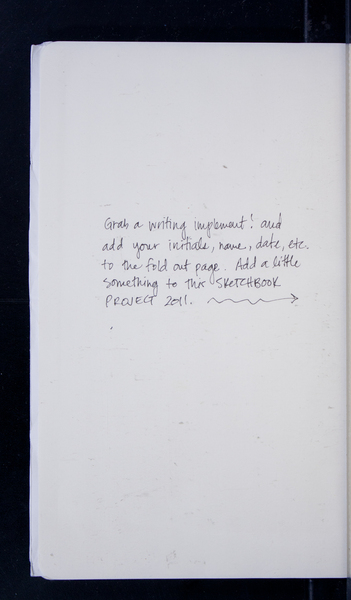 Grab a writing implement! and
add your initials, name, date, etc.
to the fold out page. Add a little
something to this SKETCHBOOK
PROJECT 2011.